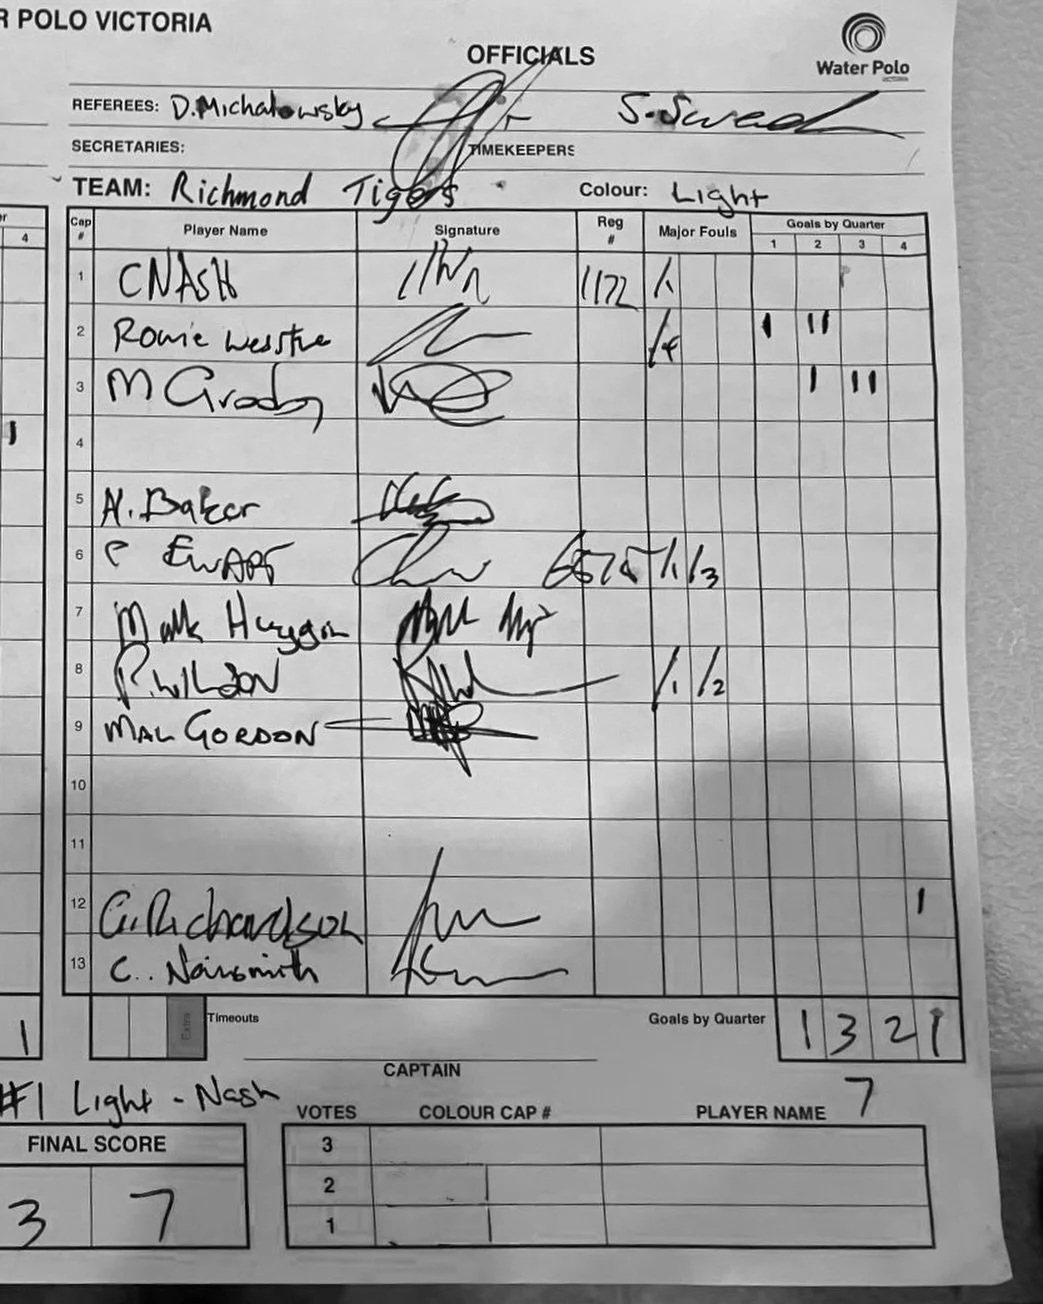 R POLO VICTORIA
OFFICIALS
Water Polo
VICTORIA
REFEREES: D.Michalowsky S.Swead
SECRETARIES: TIMEKEEPERS
TEAM: Richmond Tigers Colour: Light
Cap # Player Name Signature Reg # Major Fouls Goals by Quarter
4 1 2 3 4
1 CNASH 1172 /1
2 Romie /4 I II
3 M I II
4
5 Baker
6 EWART 6575 /1 /3
7 Mark
8 P.WILSON /1 /2
9 MAL GORDON
10
11
12 G.Richardson I
13 C.. Naismith
1 Extra Timeouts Goals by Quarter 1 3 2 1
CAPTAIN
#1 Light - Nash
VOTES COLOUR CAP # PLAYER NAME 7
FINAL SCORE
3
2
1
3 7